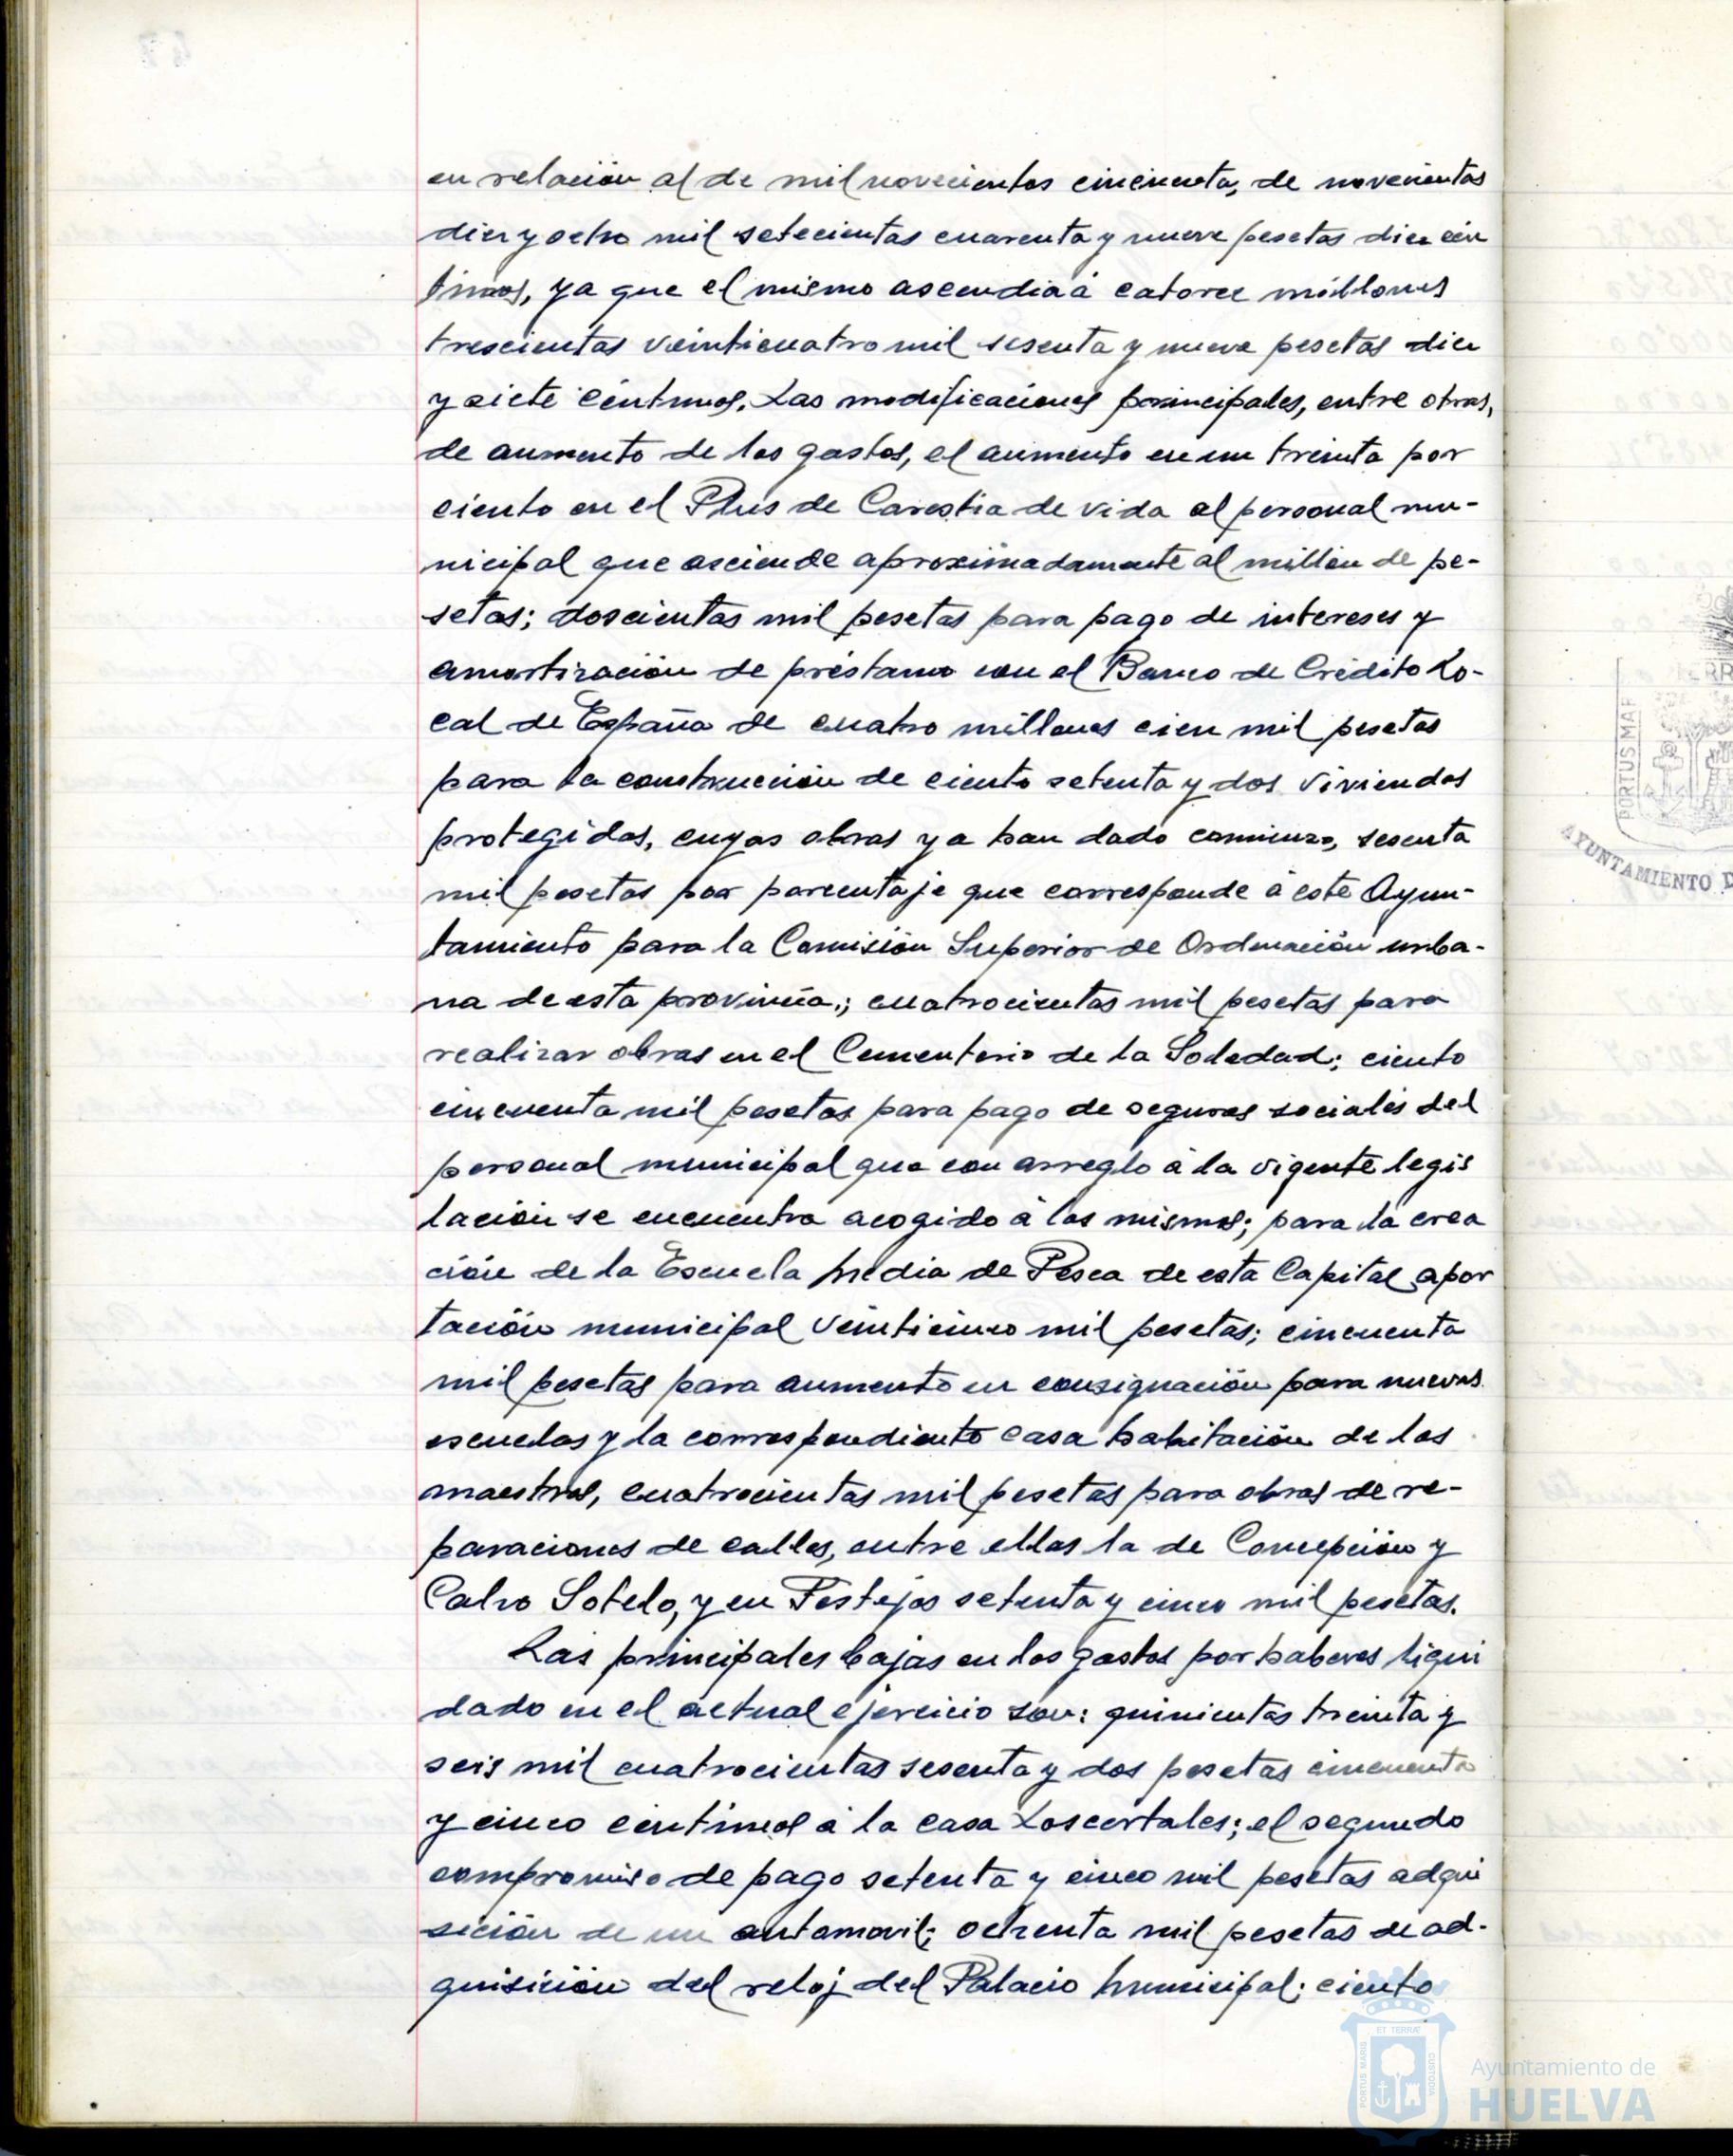 en relación al de mil novecientos cincuenta, de novecientas
diez y ocho mil setecientas cuarenta y nueve pesetas diez cén
timos, ya que el mismo ascendía á catorce millones
trescientas veinticuatro mil sesenta y nueve pesetas diez
y siete céntimos. Las modificaciones principales, entre otras,
de aumento de los gastos, el aumento en un treinta por
ciento en el Plus de Carestia de vida al personal mu-
nicipal que asciende aproximadamente al millón de pe-
setas; doscientas mil pesetas para pago de intereses y
amortización de préstamo con el Banco de Crédito Lo-
cal de España de cuatro millones cien mil pesetas
para la construcción de ciento setenta y dos viviendas
protegidas, cuyas obras ya han dado comienzo, sesenta
mil pesetas por porcentaje que corresponde á este Ayun-
tamiento para la Comisión Superior de Ordenación urba-
na de esta provincia,; cuatrocientas mil pesetas para
realizar obras en el Cementerio de la Soledad; ciento
cincuenta mil pesetas para pago de seguros sociales del
personal municipal que con arreglo á la vigente legis
lación se encuentra acogido á los mismos; para la crea
ción de la Escuela Media de Pesca de esta Capital apor
tación municipal veinticinco mil pesetas; cincuenta
mil pesetas para aumento en consignación para nuevas
escuelas y la correspondiente casa habitación de los
maestros, cuatrocientas mil pesetas para obras de re-
paraciones de calles, entre ellas la de Concepción y
Calvo Sotelo, y en Festejos setenta y cinco mil pesetas.
Las principales bajas en los gastos por haberes liqui
dado en el actual ejercicio son: quinientas treinta y
seis mil cuatrocientas sesenta y dos pesetas cincuenta
y cinco céntimos á la casa Loscertales; el segundo
compromiso de pago setenta y cinco mil pesetas adqui
sición de un automovil; ochenta mil pesetas de ad-
quisición del reloj del Palacio Municipal; ciento
PORTUS MAR
AYUNTAMIENTO D
ET TERRÆ
PORTUS MARIS
CUSTODIA
Ayuntamiento de
HUELVA